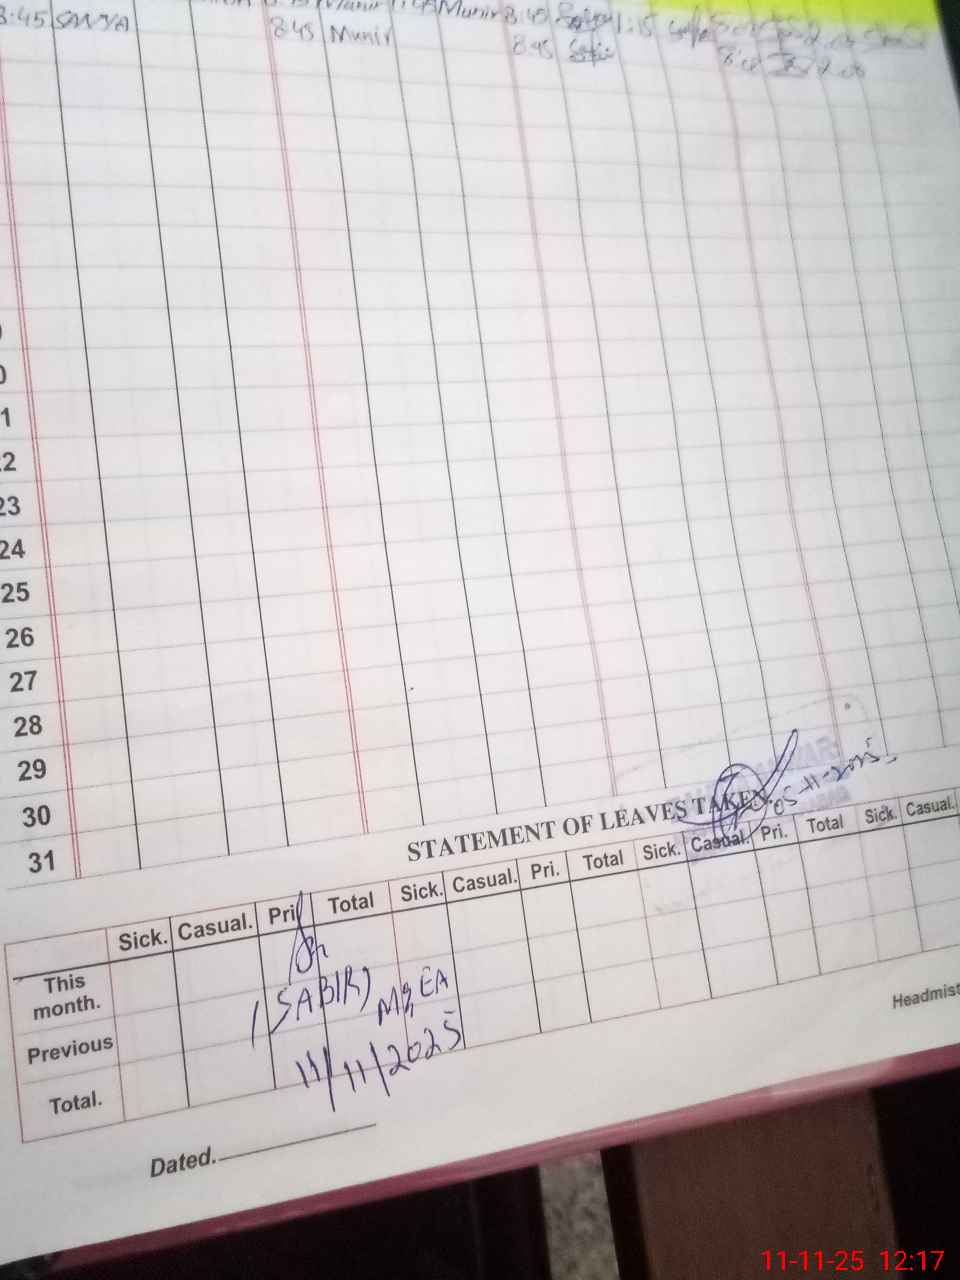 8:45 SANYA 8:45 Munir 1:45 Munir 8:45 1:15
8:45 Munir 8:45
22
23
24
25
26
27
28
29
30
31
STATEMENT OF LEAVES TAKEN
05-11-2025
Sick. Casual. Pri. Total Sick. Casual. Pri. Total Sick. Casual. Pri. Total Sick. Casual.
This month.
Previous
Total.
(SABIR) M&EA
11/11/2025
Headmist
Dated.
11-11-25 12:17